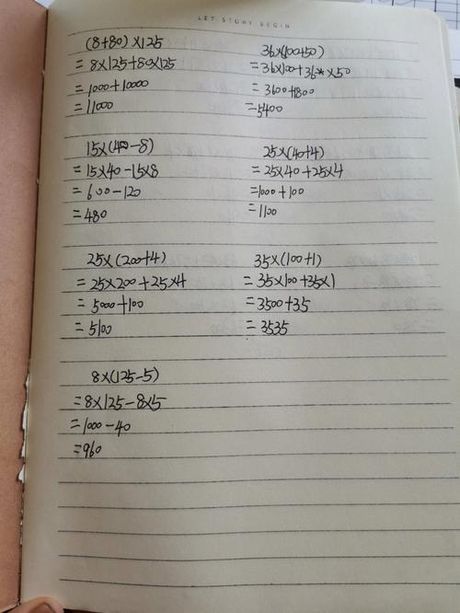 LET STORY BEGIN
(8+80)×125
=8×125+80×125
=1000+10000
=11000
36×(100+50)
=36×100+36×50
=3600+1800
=5400
15×(40-8)
=15×40-15×8
=600-120
=480
25×(40+4)
=25×40+25×4
=1000+100
=1100
25×(200+4)
=25×200+25×4
=5000+100
=5100
35×(100+1)
=35×100+35×1
=3500+35
=3535
8×(125-5)
=8×125-8×5
=1000-40
=960